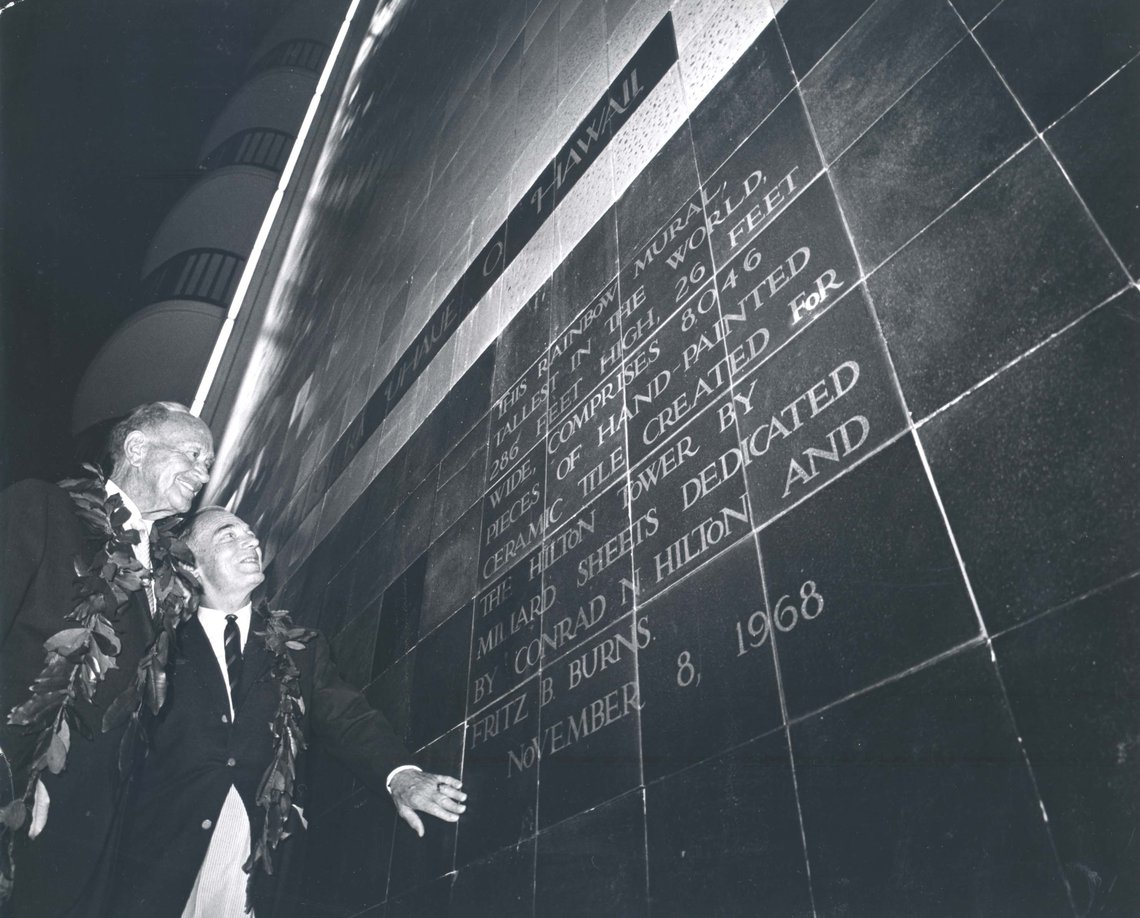 O' HAWAII
THIS RAINBOW MURAL,
TALLEST IN THE WORLD,
286 FEET HIGH, 26 FEET
WIDE, COMPRISES 8046
PIECES OF HAND-PAINTED
CERAMIC TILE CREATED FOR
THE HILTON TOWER BY
MILLARD SHEETS DEDICATED
BY CONRAD N HILTON AND
FRITZ B. BURNS.
NOVEMBER 8, 1968